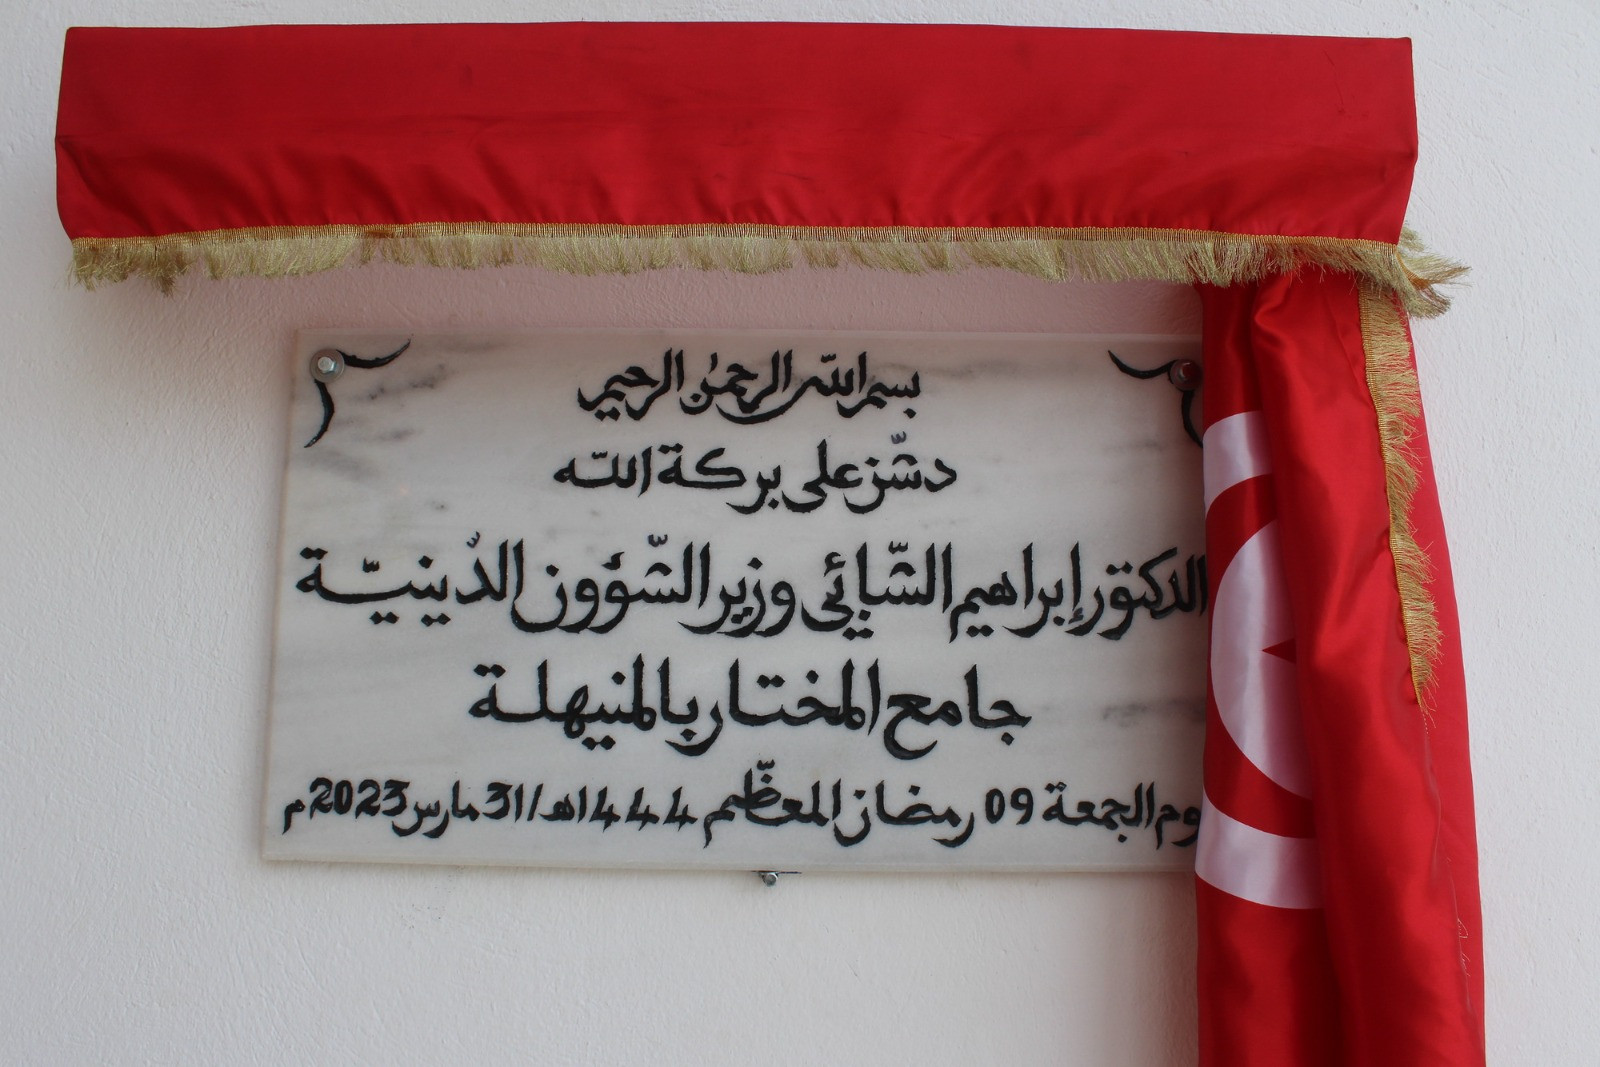 بسم الله الرحمٰن الرحيم
دشّن على بركة الله
الدكتور إبراهيم الشّائبي وزير الشّؤون الدّينيّة
جامع المختار بالمنيهلة
يوم الجمعة 09 رمضان المعظّم 1444هـ/31 مارس 2023م